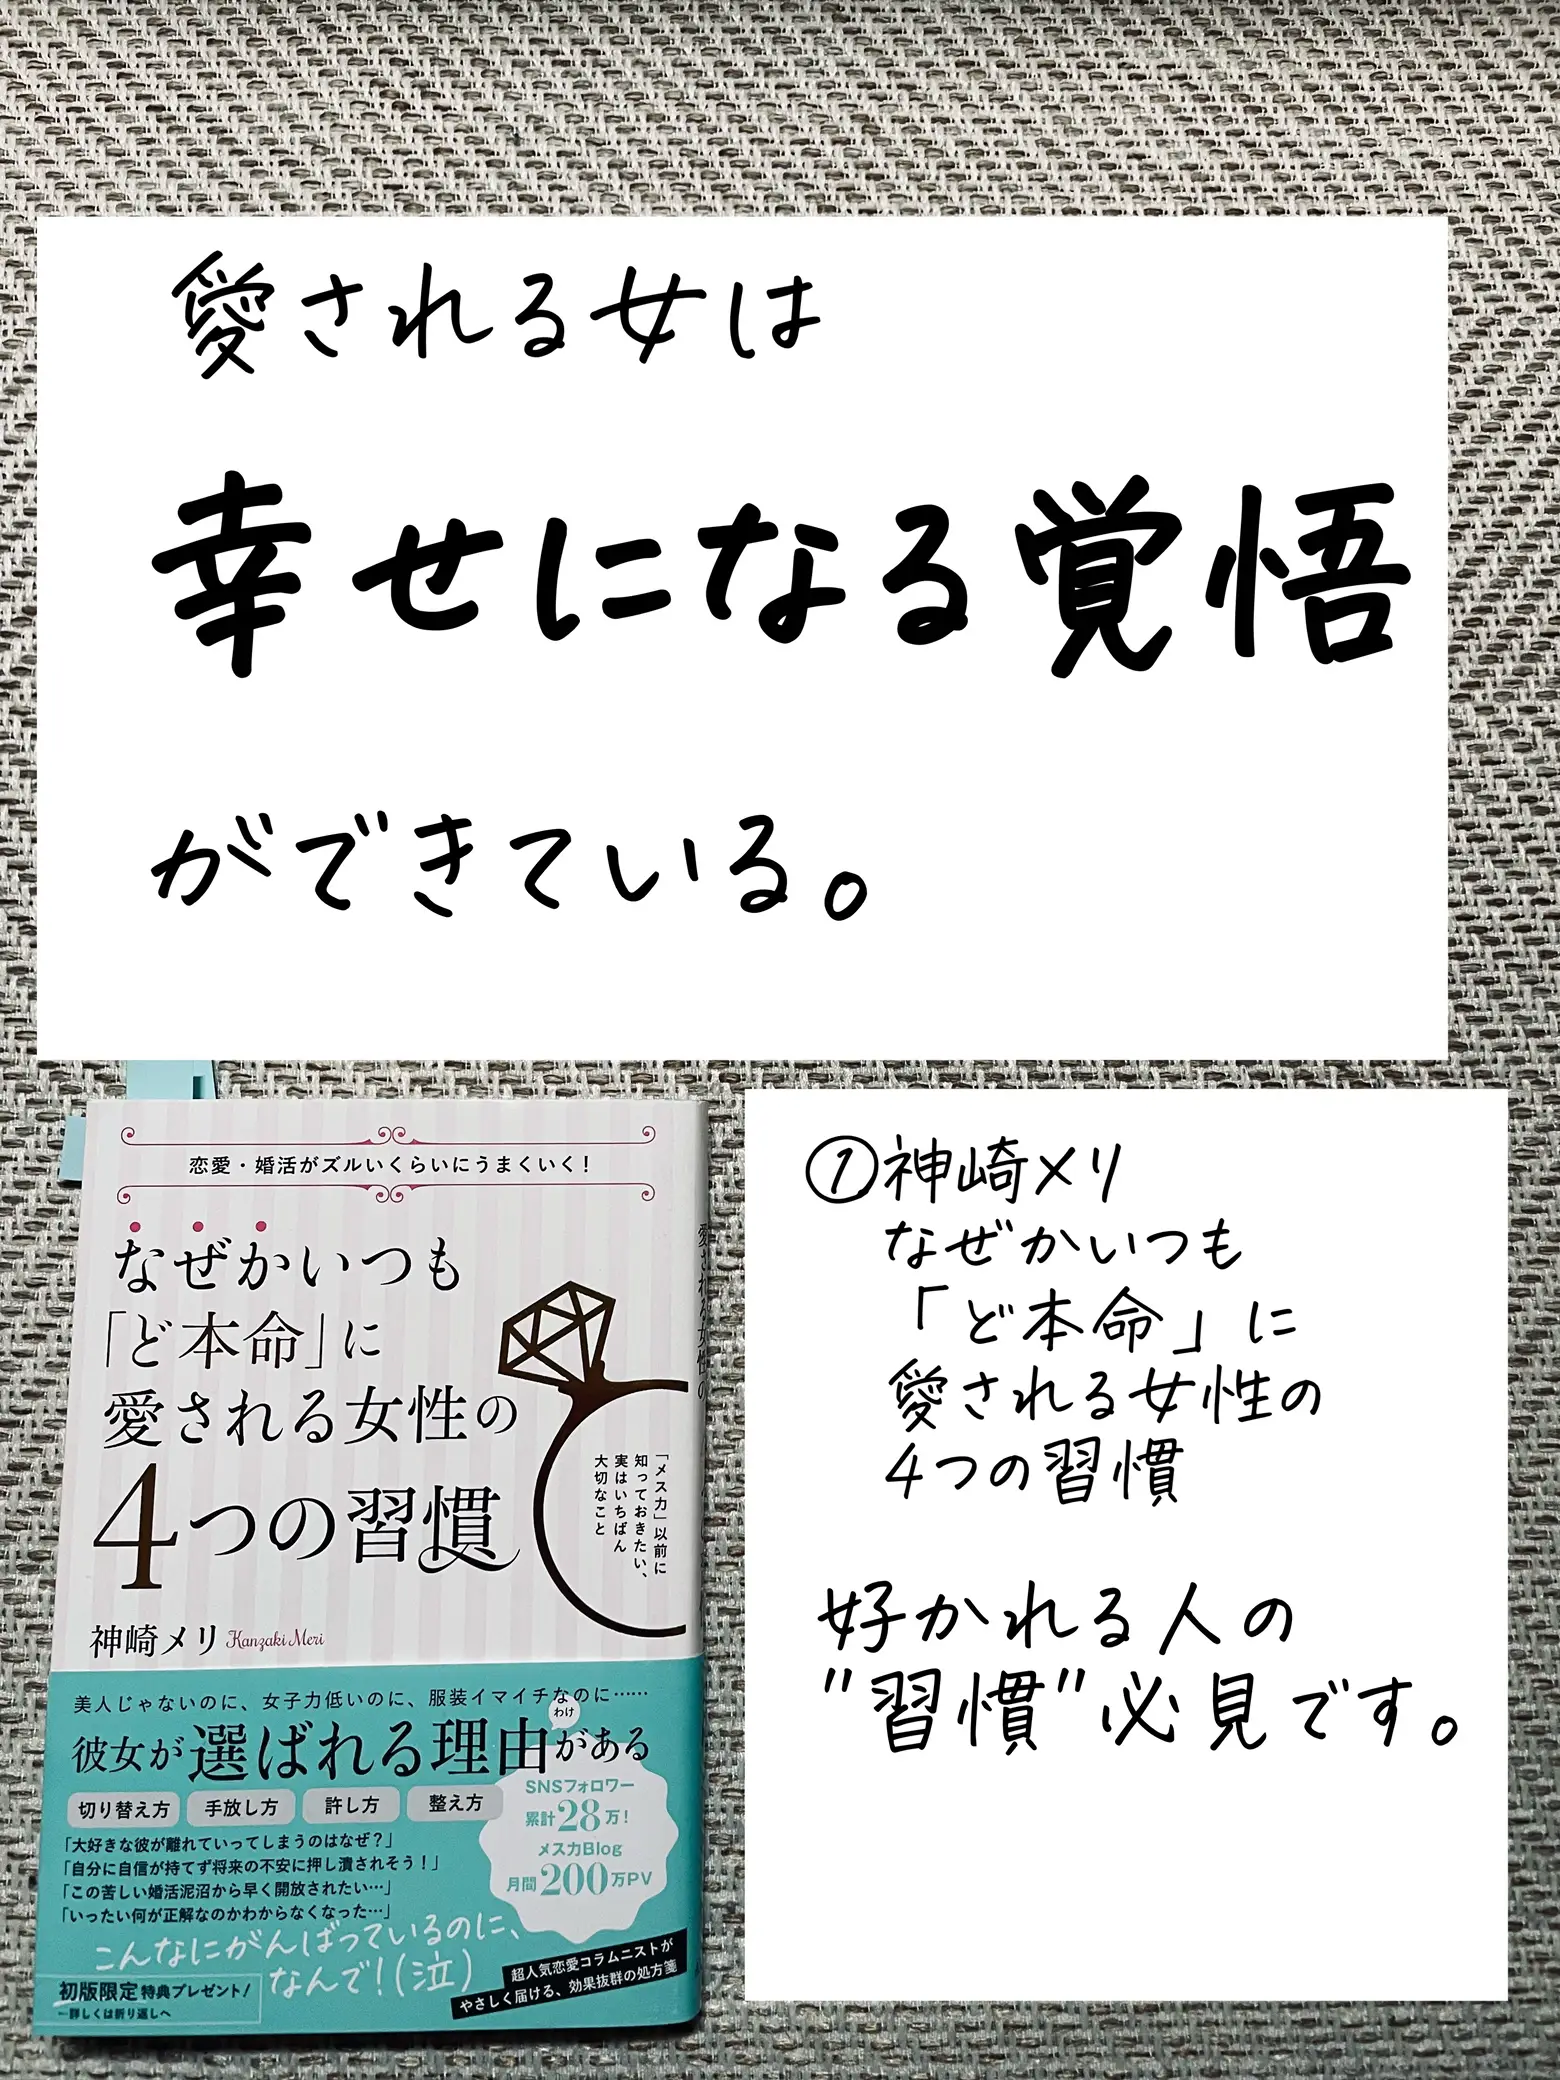 愛される女は
幸せになる覚悟
ができている。
恋愛・婚活がズルいくらいにうまくいく!
なぜかいつも
「ど本命」に
愛される女性の
4つの習慣
「メス力」以前に
知っておきたい、
実はいちばん
大切なこと
神崎メリ Kanzaki Meri
美人じゃないのに、女子力低いのに、服装イマイチなのに……
彼女が選ばれる理由がある
わけ
切り替え方 手放し方 許し方 整え方
SNSフォロワー
累計28万!
メス力Blog
月間200万PV
「大好きな彼が離れていってしまうのはなぜ?」
「自分に自信が持てず将来の不安に押し潰されそう!」
「この苦しい婚活泥沼から早く開放されたい…」
「いったい何が正解なのかわからなくなった…」
こんなにがんばっているのに、
なんで!(泣)
初版限定 特典プレゼント!
―詳しくは折り返しへ
超人気恋愛コラムニストが
やさしく届ける、効果抜群の処方箋
愛される女性の
①神崎メリ
なぜかいつも
「ど本命」に
愛される女性の
4つの習慣
好かれる人の
"習慣"必見です。